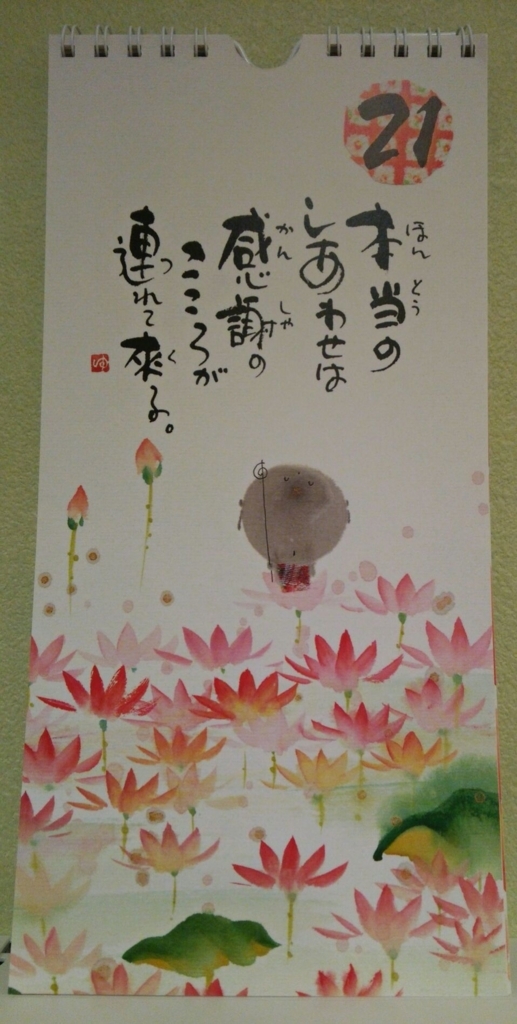 21
本当の
ほんとう
しあわせは
感謝の
かんしゃ
こころが
連れて來る。
つ く